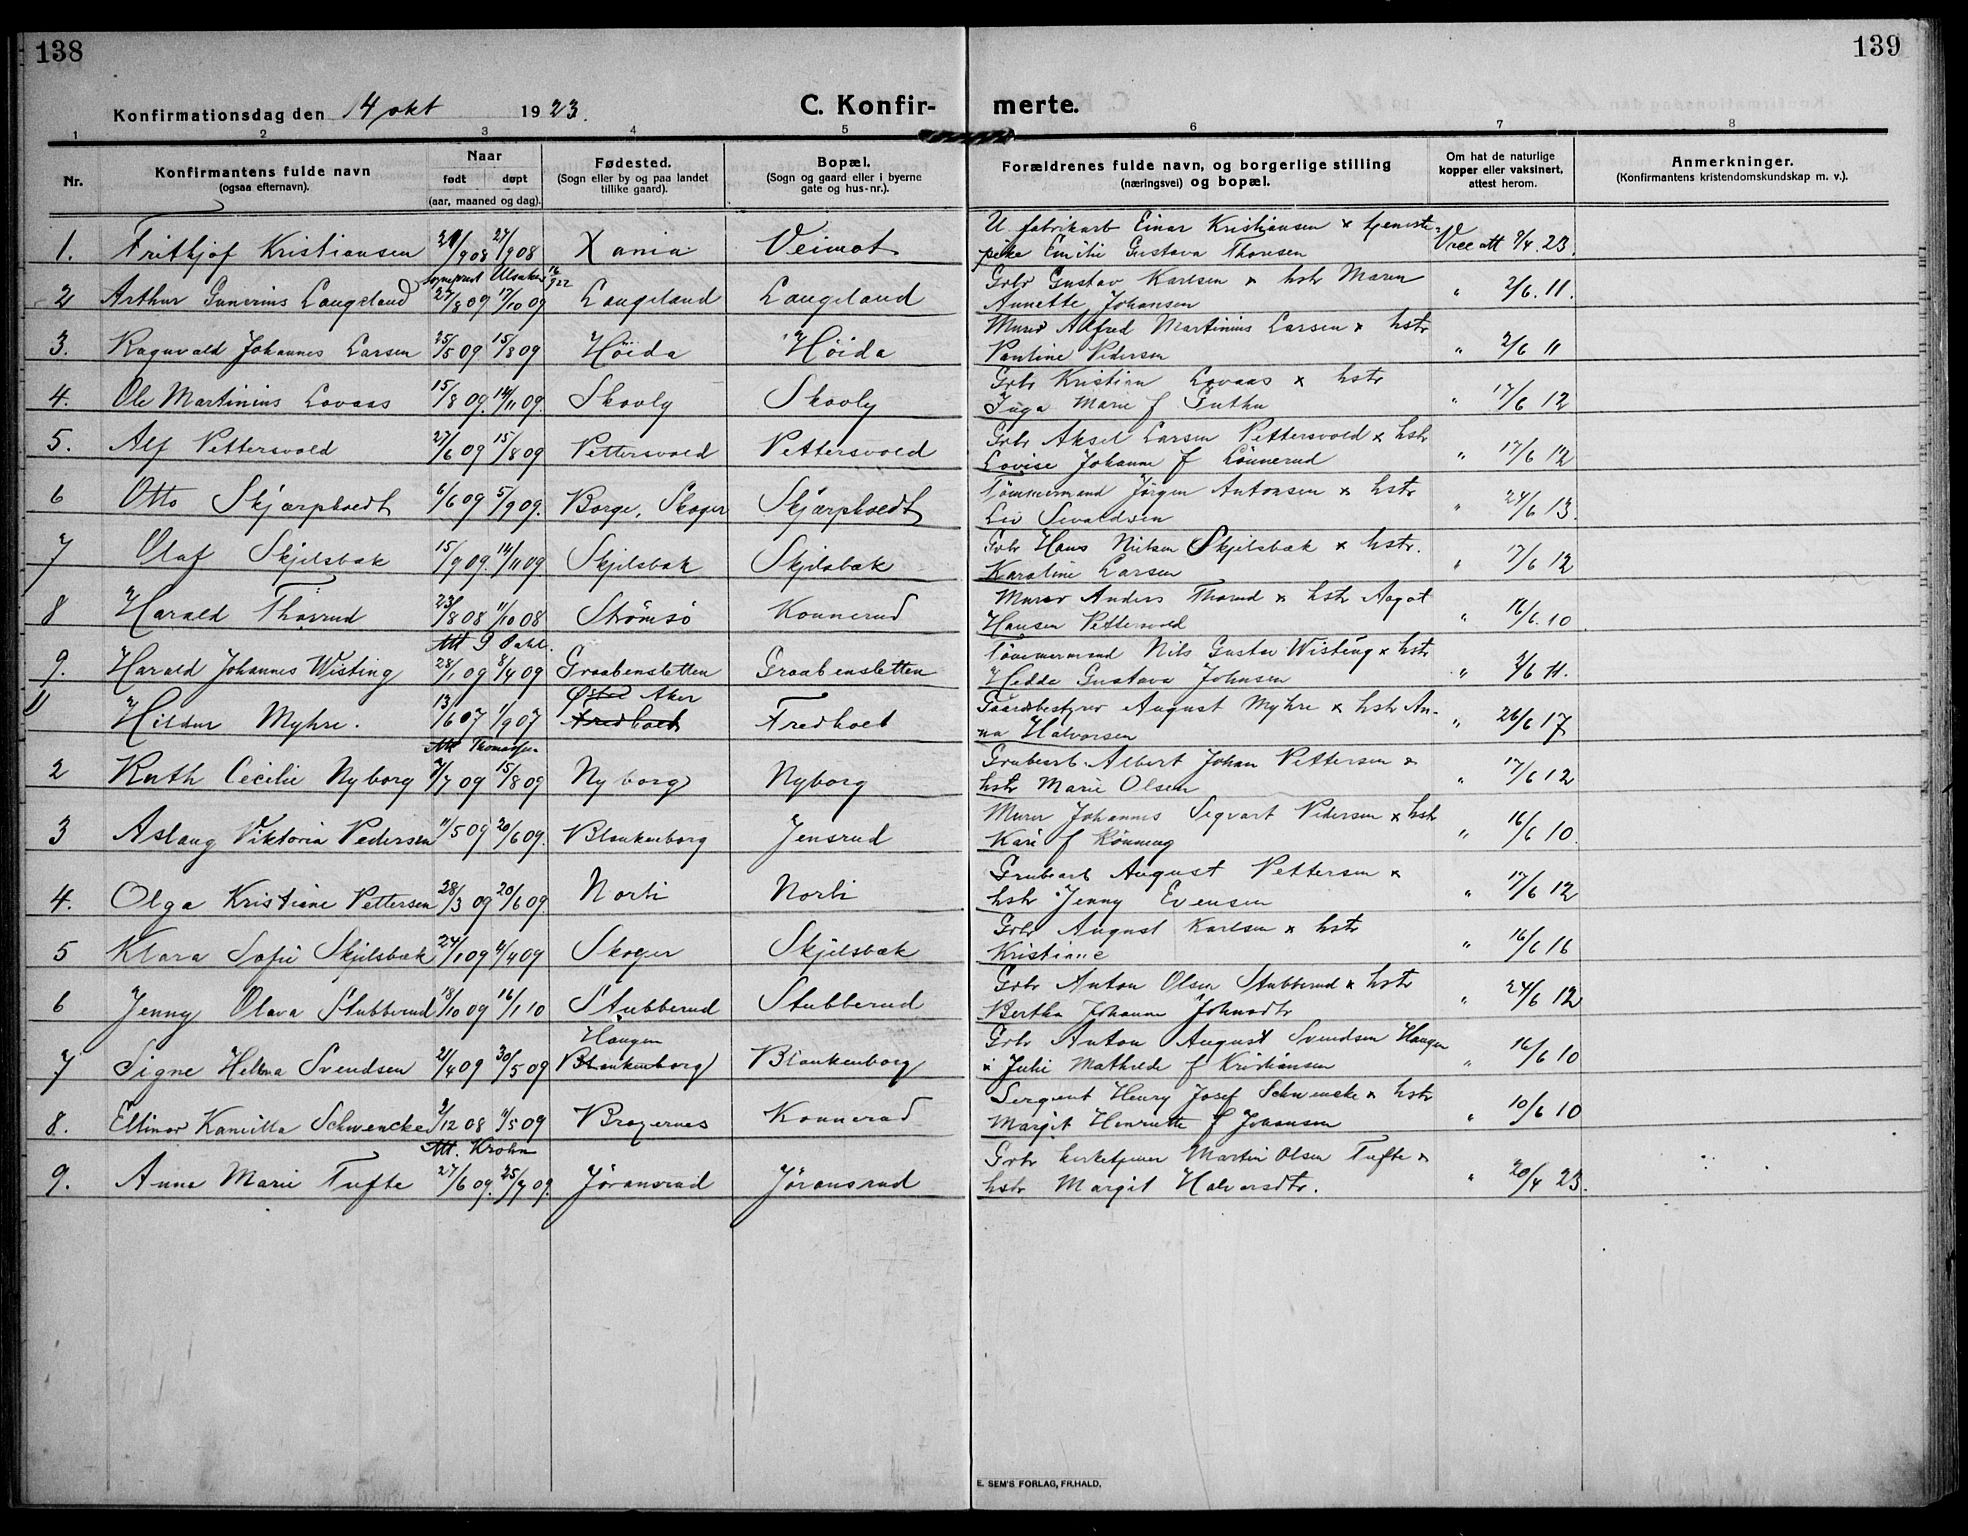 138
139
Konfirmationsdag den 14 okt 1923.
C. Konfir- merte.
1 2 3 4 5 6 7 8
Nr.
Konfirmantens fulde navn
(ogsaa efternavn).
Naar
født døpt
(aar, maaned og dag).
Fødested.
(Sogn eller by og paa landet
tillike gaard).
Bopæl.
(Sogn og gaard eller i byerne
gate og hus-nr.).
Forældrenes fulde navn, og borgerlige stilling
(næringsvei) og bopæl.
Om hat de naturlige
kopper eller vaksinert,
attest herom.
Anmerkninger.
(Konfirmantens kristendomskundskap m. v.).
U. fabrikarb Einar Kristiansen x tjeneste-
1. Frithjof Kristiansen 21/9 08 27/9 08 Xania Veimot pike Emilie Gustava Thoresen Vacc att 9/4 23.
Grbr Gustav Karlsen x hstr Maren
2 Arthur Gunerius Langeland 27/8 09 17/10 09 Langeland Langeland Annette Johansen " 2/6. 11.
Murer Alfred Martinius Larsen x hstr
3. Ragnvald Johannes Larsen 25/5 09 15/8 09 Höida Höida Pauline Pedersen " 2/6 11
Grbr Kristian Lovaas x hstr
4. Ole Martinius Lovaas 15/8 09. 14/11 09. Skovly Skovly Inga Marie f Guthu " 17/6 12
Grbr Aksel Larsen Pettersvold x hstr
5. Alf Pettersvold 27/6 09 15/8 09 Pettersvold Pettersvold Lovise Johanne f Lönnerud " 17/6 12
Tömmermand Jörgen Antonsen x hstr
6 Otto Skjærpholdt 6/6 09 5/9 09. Borge, Skoger Skjærpholdt Liv Sevaldsen " 24/6 13.
Grbr Hans Nielsen Skjelsbæk x hstr.
7 Olaf Skjelsbæk 15/9 09. 14/11 09. Skjelsbæk Skjelsbæk Karoline Larsen " 17/6 12
Murer Anders Thorud x hstr Aagot
8 Harald Thorrud 23/8 08 11/10 08 Strömsö Konnerud Hansen Pettersvold " 16/6. 10
Att G Dahl.
Tömmermand Nils Gustav Wisting x hstr
9. Harald Johannes Wisting 28/1 09 8/4 09 Graabensletten Graabensletten Hedde Gustava Johnsen " 2/6 11.
Østre Aker
Gaardsbestyrer August Myhre x hstr An-
1) Hildur Myhre. 13/6 07 1/9 07 Fredholt Fredholt na Halvorsen " 26/6 17
Att Thomassen
Grubearb Albert Johan Pettersen x
2 Ruth Cecilie Nyborg 7/7 09 15/8 09 Nyborg Nyborg hstr Marie Olsen " 17/6 12
Murer Johannes Sigvart Pedersen x hstr
3 Aslaug Viktoria Pedersen 11/5 09 20/6 09. Blankenborg Jensrud Kari f Rönning " 16/6 10.
Grubearb August Pettersen x
4. Olga Kristine Pettersen 28/3 09 20/6 09. Norli Norli hstr Jenny Evensen " 17/6 12
Grbr August Karlsen x hstr
5 Klara Sofie Skjelsbæk 24/1 09 4/4 09 Skoger Skjelsbæk Kristiane " 16/6 16
Grbr Anton Olsen Stubberud x hstr
6 Jenny Olava Stubberud 18/10 09 16/1 10 Stubberud Stubberud Bertha Johanne Johnsdtr " 24/6 12
Haugen
Grbr Anton August Svendsen Haugen
7 Signe Helena Svendsen 2/4 09 30/5 09 Blankenborg Blankenborg x Julie Mathilde f Kristiansen " 16/6 10
Sergent Henry Josef Schwencke x hstr
8. Ellinor Kamilla Schwencke 9/12 08 11/5 09 Bragernes Konnerud Margit Henriette f Johansen " 10/6 10
Att. Krohn
Grbr kirketjener Martin Olsen Tufte x
9. Anna Marie Tufte 27/6 09. 25/7 09. Jöransrud Jöransrud hstr Margit Halvorsdtr. " 20/4 23.
E. SEM'S FORLAG, FR.HALD.